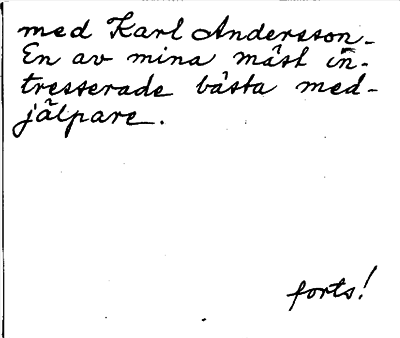 med Karl Andersson_
En av mina mäst in-
tresserade bästa med-
jälpare.
forts!